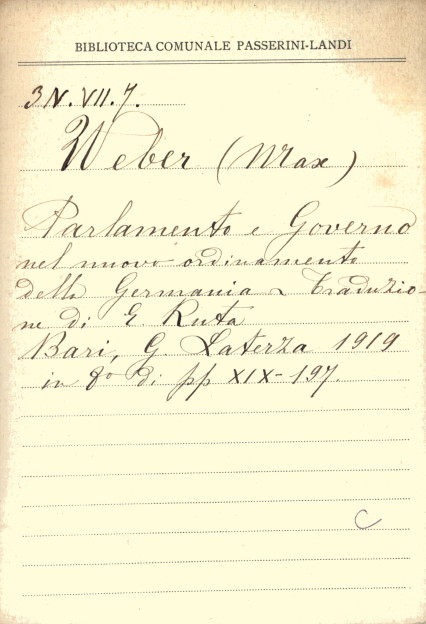 BIBLIOTECA COMUNALE PASSERINI-LANDI
3N.VII.7.
Weber (Max)
Parlamento e Governo
nel nuovo ordinamento
della Germania ~ Traduzio-
ne di E. Ruta
Bari, G. Laterza 1919
in 8º di pp XIX-197.
C